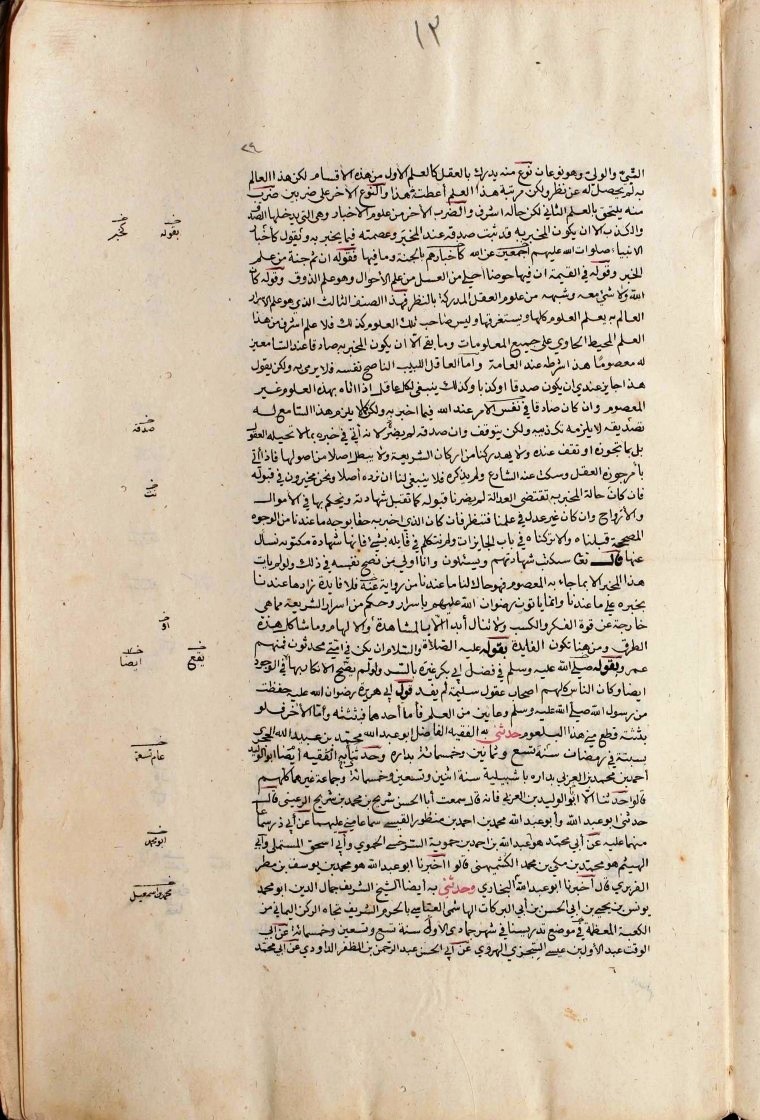 ١٣
٢٩
النبي والولي وهو نوعان نوع منه يدرك بالعقل كالعلم الاول من هذه الاقسام لكن هذا العالم
به لم يحصل له عن نظر ولكن مرتبة هذا العلم أعطت هذا والنوع الآخر على ضربين ضرب
منه يلتحق بالعلم الثاني لكن حاله اشرف والضرب الآخر من علوم الاخبار وهي التي يدخلها الصدق
والكذب الا ان يكون المخبر به قد ثبت صدقه عند المخبر وعصمته فيما يخبر به ويقول كاخبار
الانبياء صلوات الله عليهم أجمعين عن الله كاخبارهم بالجنة وما فيها فقوله ان ثم جنة من علم
الخبر وقوله في القيمة ان فيها حوضا احلى من العسل من علم الأحوال وهو علم الذوق وقوله كان
الله ولا شئ معه وشبهه من علوم العقل المدركة بالنظر فهذا الصنف الثالث الذي هو علم الاسرار
العالم به يعلم العلوم كلها ويستغرقها وليس صاحب تلك العلوم كذلك فلا علم اشرف من هذا
العلم المحيط الحاوي على جميع المعلومات وما بقى الا ان يكون المخبر به صادقا عند السامعين
له معصوما هذا شرطه عند العامة وأما العاقل اللبيب الناصح نفسه فلا يرمى به ولكن يقول
هذا جايز عندي ان يكون صدقا او كذبا وكذلك ينبغي لكل عاقل اذا اتاه بهذه العلوم غير
المعصوم وان كان صادقا في نفس الامر عند الله فيما اخبر به ولكن كما لا يلزم هذا السامع له
تصديقه لا يلزمه تكذيبه ولكن يتوقف وان صدقه لم يضره لانه أتى في خبره بما لا تحيله العقول
بل بما تجوزه او تقف عنده ولا يهد ركنا من اركان الشريعة ولا يبطل اصلا من اصولها فاذا أتى
بأمر جوزه العقل وسكت عنه الشارع ولم يذكره فلا ينبغي لنا ان نرده أصلا ونحن مخيرون في قبوله
فان كان حالة المخبر به تقتضي العدالة لم يضرنا قبوله كما تقبل شهادته ونحكم بها في الأموال
والأرواح وان كان غير عدل في علمنا فننظر فان كان الذي اخبر به حقا بوجه ما عندنا من الوجوه
المصححة قبلناه والا تركناه في باب الجايزات ولم نتكلم في قايله بشئ فانها شهادة مكتوبة نسأل
عنها قال تعا ستكتب شهادتهم ويسئلون وانا أولى من نصح نفسه في ذلك ولو لم يات
هذا المخبر الا بما جاء به المعصوم فهو حاك لنا ما عندنا من رواية عنه فلا فايدة زادها عندنا
بخبره على ما عندنا وانما ياتون رضوان الله عليهم باسرار وحكم من اسرار الشريعة مما هي
خارجة عن قوة الفكر والكسب ولا تنال أبدا الا بالمشاهدة والالهام وما شاكل هذه
الطرق ومن هنا تكون الفايدة لقوله عليه الصلاة والسلام ان يكن في امتي محدثون فمنهم
عمر وبقوله صلى الله عليه وسلم في فضل ابي بكر غرة بالسر ولو لم يصح الانكار بها في الوجود
ايضا وكان الناس كلهم اصحاب عقول سليمة لم يفد قول ابي هريرة رضوان الله عليه حفظت
من رسول الله صلى الله عليه وسلم وعاءين من العلم فأما أحدهما فبثثته وأما الآخر فلو
بثثته قطع مني هذا البلعوم حدثني به الفقيه الفاضل ابو عبد الله محمد بن عبيد الله الحجري
بسبتة في رمضان سنة تسع وثمانين وخمسمائة بداره وحدثنا به الفقيه أيضا ابو الوليد
أحمد بن محمد بن العربي بداره باشبيلية سنة اثنين وتسعين وخمسمائة وجماعة غيرهما كلهم
قالوا حدثنا الا ابو الوليد بن العربي فانه قال سمعت أبا الحسن شريح بن محمد بن شريح الرعيني قال
حدثني ابو عبد الله وأبو عبد الله محمد بن احمد بن منظور القيسي سماعا مني عليهما عن أبي ذر سماعا
منهما عليه عن أبي محمد هو عبد الله بن احمد بن حموية السرخسي الحموي وأبي اسحق المستملى وابي
الهيثم هو محمد بن مكي بن محمد الكشميهني قالوا اخبرنا ابو عبد الله هو محمد بن يوسف بن مطر
الفربري قال أخبرنا ابو عبد الله البخاري وحدثني به ايضا الشيخ الشريف جمال الدين ابو محمد
يونس بن يحيى بن ابي الحسن بن أبي البركات الهاشمي العباسي بالحرم الشريف تجاه الركن اليماني من
الكعبة المعظمة في موضع تدريسنا في شهر جمادي الأولى سنة تسع وتسعين وخمسمائة عن ابي
الوقت عبد الأول بن عيسى السجزي الهروي عن ابي الحسن عبد الرحمن بن المظفر الداودي عن ابي محمد
بقوله
صدقه
او
يقع
ايضا
عام تسعة
ابو محمد
محمد بن اسمعيل